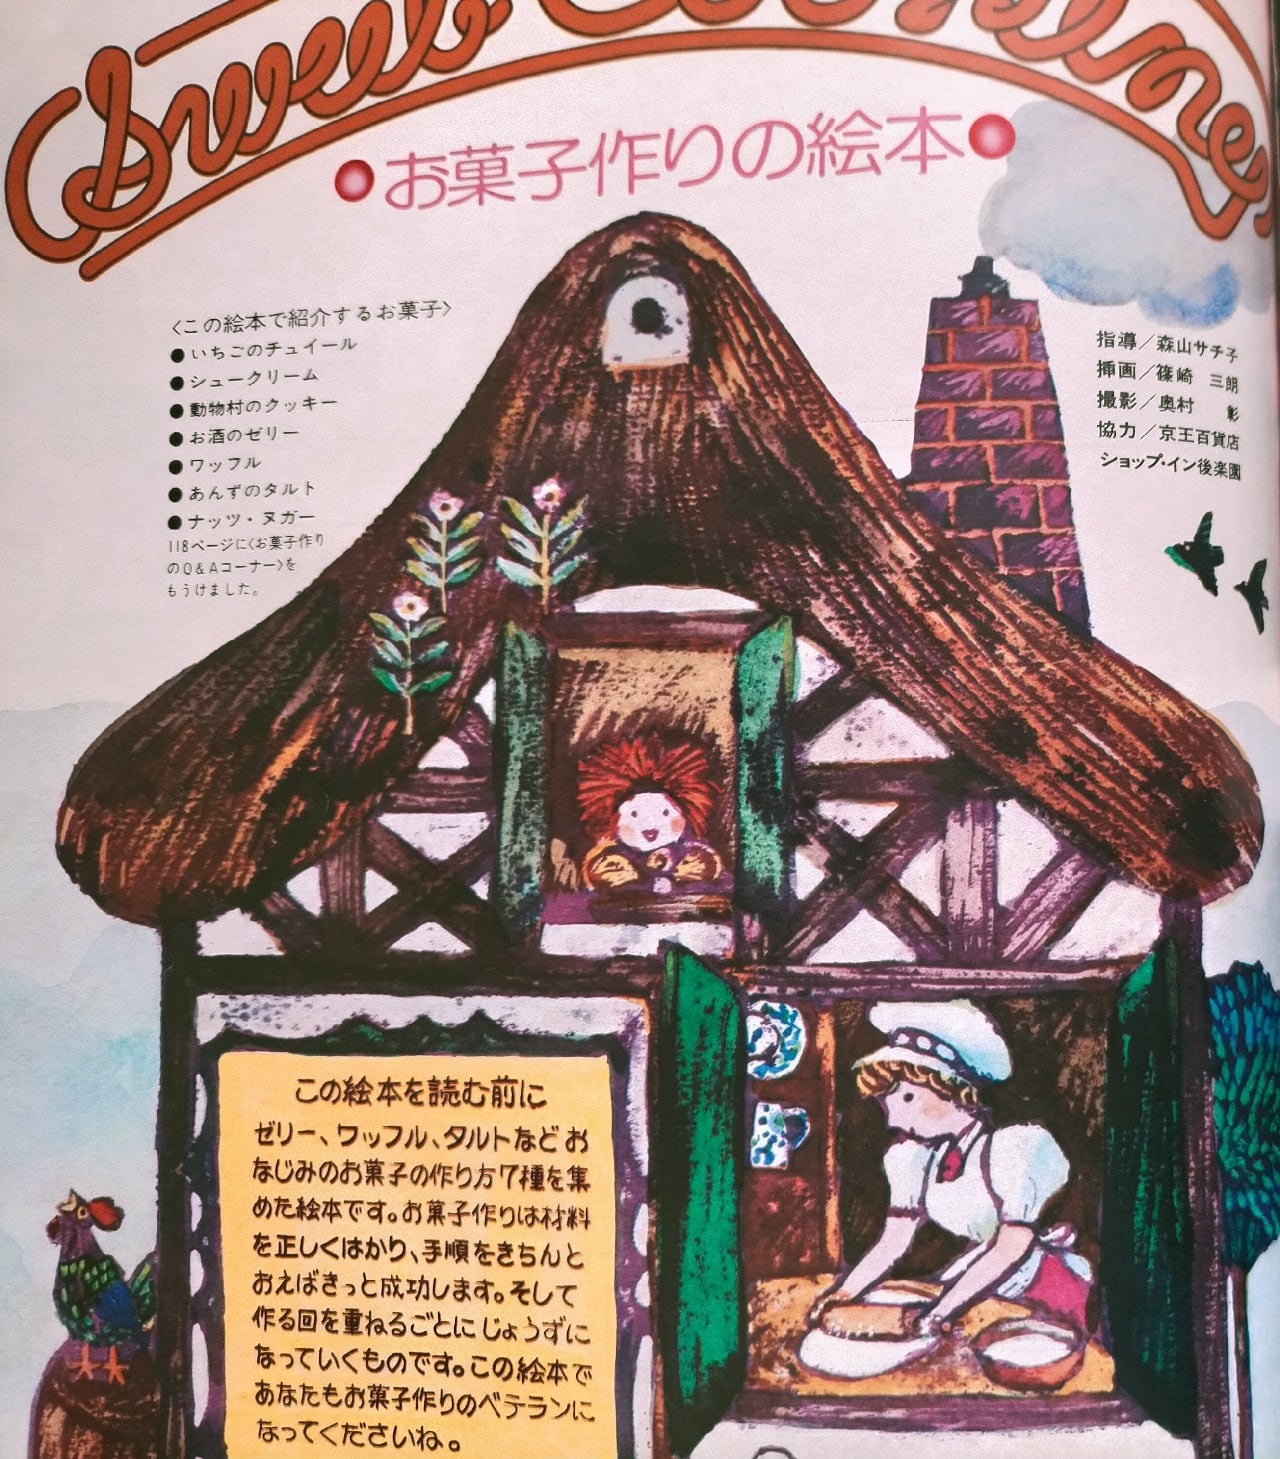 Sweet
●お菓子作りの絵本●
〈この絵本で紹介するお菓子〉
●いちごのチュイール
●シュークリーム
●動物村のクッキー
●お酒のゼリー
●ワッフル
●あんずのタルト
●ナッツ・ヌガー
118ページに〈お菓子作り
のQ&Aコーナー〉を
もうけました。
指導／森山サチ子
挿画／篠崎 三朗
撮影／奥村 彰
協力／京王百貨店
ショップ・イン後楽園
この絵本を読む前に
ゼリー、ワッフル、タルトなどお
なじみのお菓子の作り方7種を集
めた絵本です。お菓子作りは材料
を正しくはかり、手順をきちんと
おえばきっと成功します。そして
作る回を重ねるごとにじょうずに
なっていくものです。この絵本で
あなたもお菓子作りのベテランに
なってくださいね。